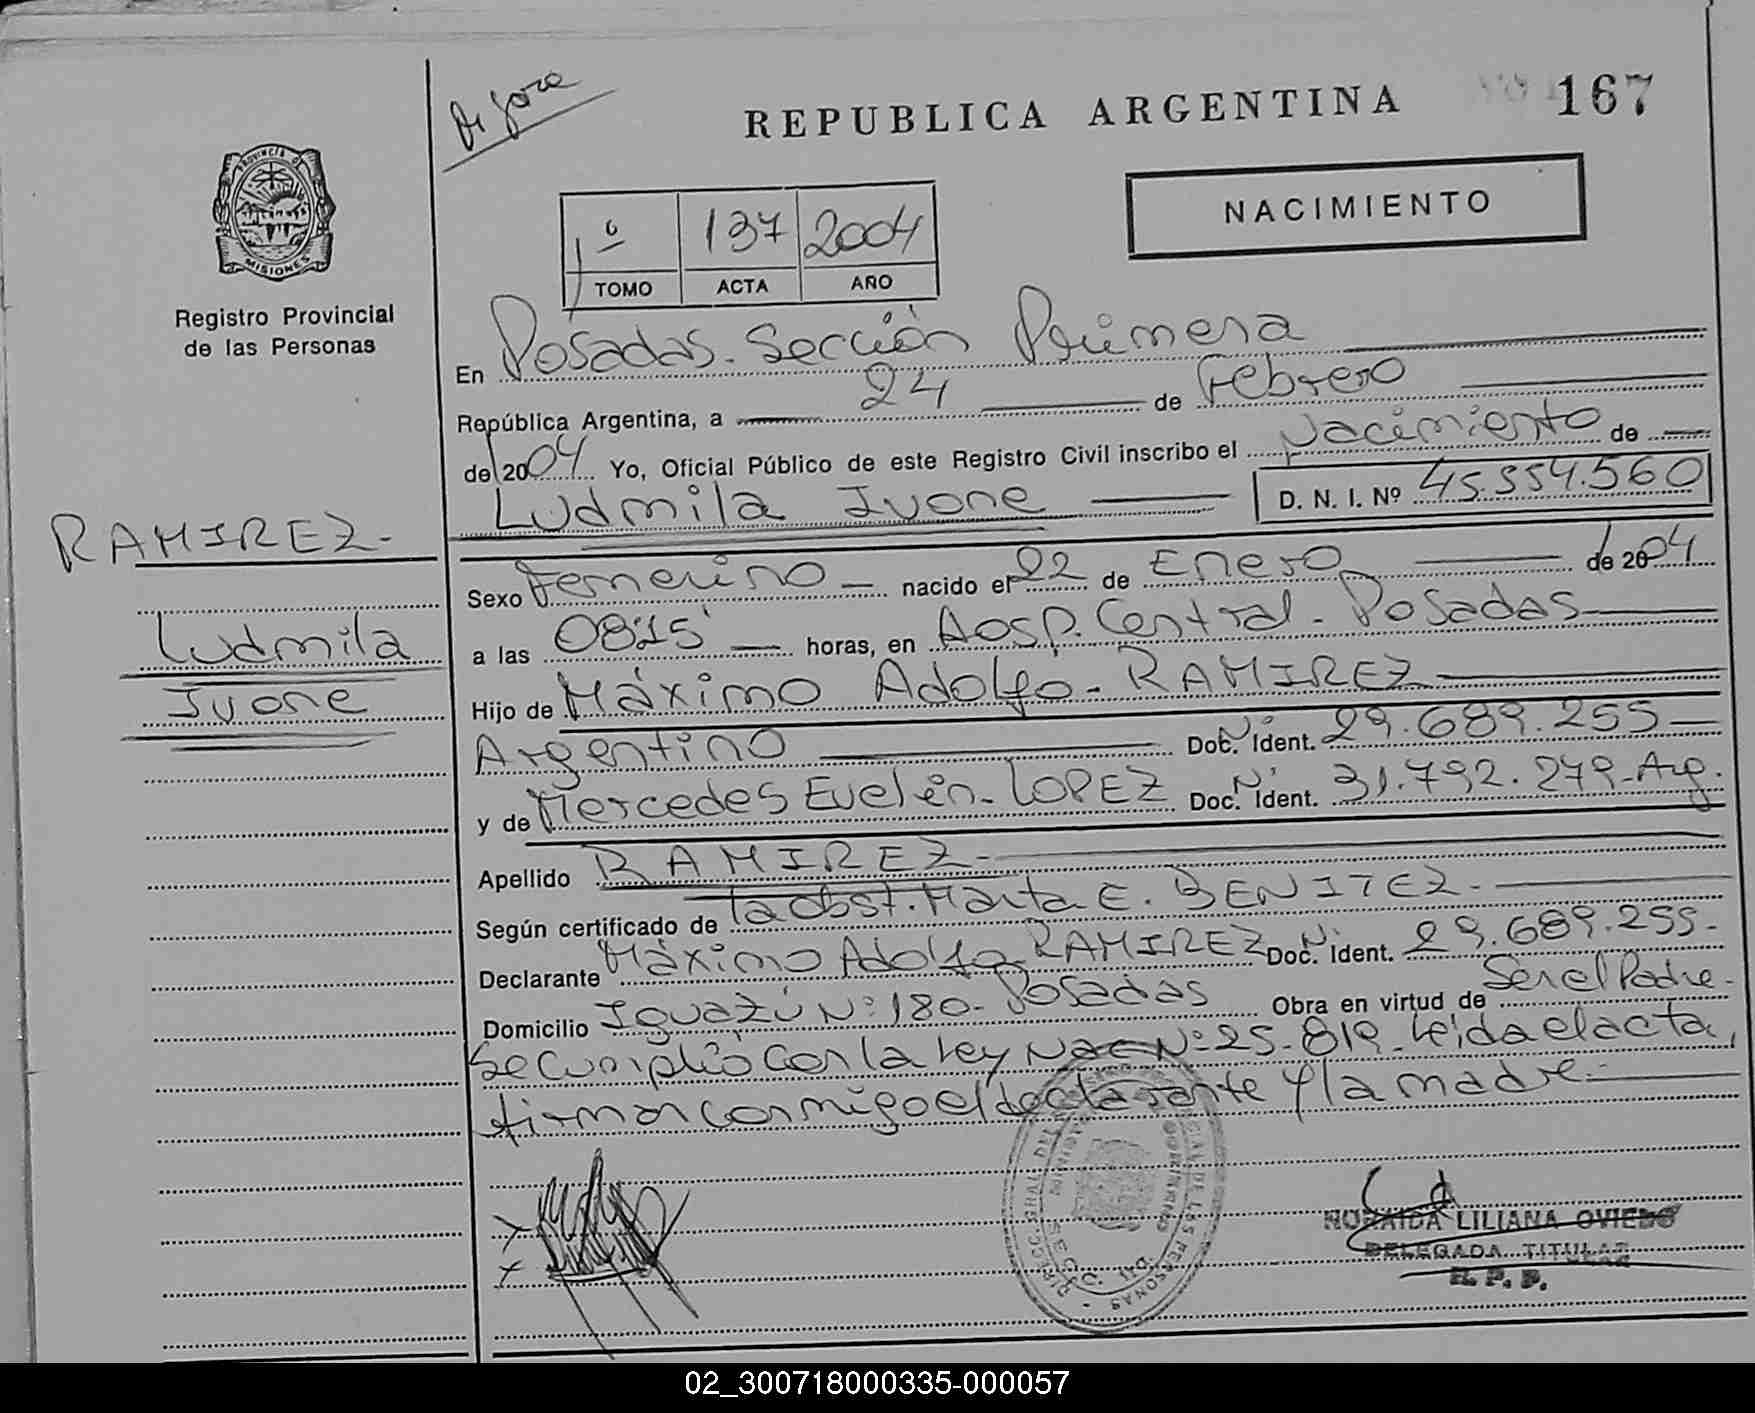 167
REPUBLICA ARGENTINA
NACIMIENTO
PROVINCIA D
MISIONES
Registro Provincial
de las Personas
1º 137 2004
TOMO ACTA AÑO
En Posadas. Sección Primera
República Argentina, a 24 de Febrero
de 2004 Yo, Oficial Público de este Registro Civil inscribo el Nacimiento de
Ludmila Ivone D. N. I. Nº 45.554.560
RAMIREZ-
Ludmila
Ivone
Sexo Femenino nacido el 22 de Enero de 2004
a las 08:15' horas, en Hosp. Central - Posadas
Hijo de Máximo Adolfo - RAMIREZ
Argentino Doc. Ident. Nº 29.689.255
y de Mercedes Evelén - LOPEZ Doc. Ident. Nº 31.792.279-Arg.
Apellido RAMIREZ-
Según certificado de la Obst. Marta E. BENITEZ-
Declarante Máximo Adolfo RAMIREZ Doc. Ident. Nº 29.689.255-
Domicilio Iguazú Nº 180- Posadas Obra en virtud de Ser el Padre-
Se Cumplió con la Ley Nac Nº 25.819- Leída el acta,
firman conmigo el declarante y la madre-
NORAIDA LILIANA OVIEDO
DELEGADA TITULAR
R. P. P.
02_300718000335-000057